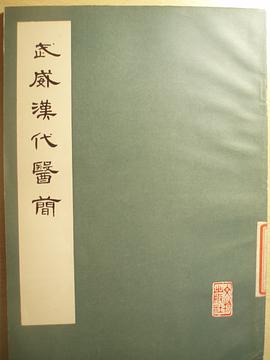 武威漢代醫簡
文物
出版社